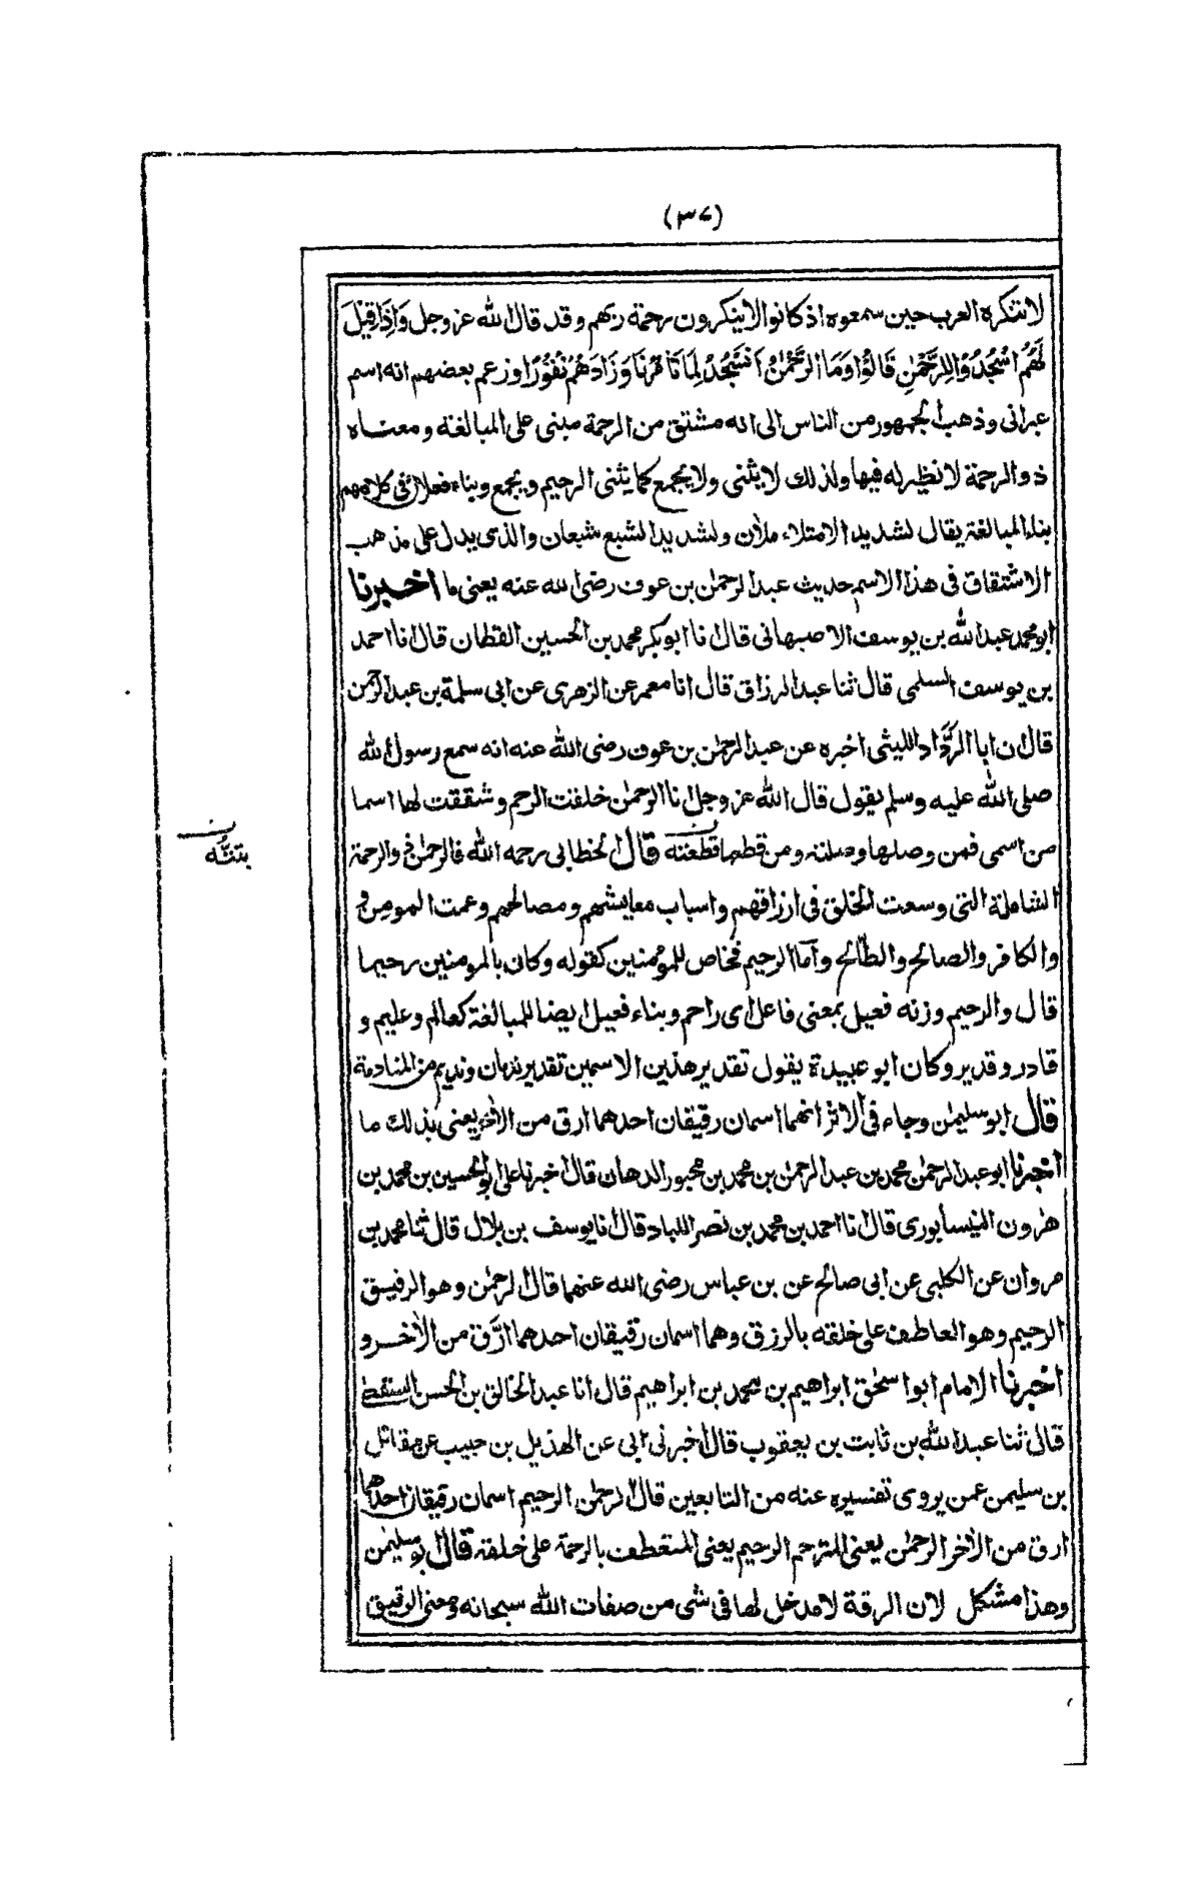 (٣٧)
لا تنكره العرب حين سمعوه اذ كانوا لا ينكرون رحمة ربهم وقد قال الله عز وجل وَاِذَا قِيْلَ
لَهُمُ اسْجُدُوْا لِلرَّحْمٰنِ قَالُوْا وَمَا الرَّحْمٰنُ اَنَسْجُدُ لِمَا تَاْمُرُنَا وَزَادَهُمْ نُفُوْرًا وزعم بعضهم انه اسم
عبرانى وذهب الجمهور من الناس الى انه مشتق من الرحمة مبنى على المبالغة ومعناه
ذو الرحمة لا نظير له فيها ولذلك لا يثنى ولا يجمع كما يثنى الرحيم ويجمع وبناء فعلان فى كلامهم
بناء المبالغة يقال لشديد الامتلاء ملأن ولشديد الشبع شبعان والذى يدل على مذهب
الاشتقاق فى هذا الاسم حديث عبد الرحمٰن بن عوف رضى الله عنه يعنى ما اخبرنا
ابو محمد عبد الله بن يوسف الاصبهانى قال انا ابو بكر محمد بن الحسين القطان قال انا احمد
بن يوسف السلمى قال ثنا عبد الرزاق قال انا معمر عن الزهرى عن ابى سلمة بن عبد الرحمن
قال ان ابا الرَّدَّاد الليثى اخبره عن عبد الرحمٰن بن عوف رضى الله عنه انه سمع رسول الله
صلى الله عليه وسلم يقول قال الله عز وجل انا الرحمٰن خلقت الرحم وشققت لها اسما
من اسمى فمن وصلها وصلته ومن قطعها قطعته قال الخطابى رحمه الله فالرحمٰن ذو الرحمة
الشاملة التى وسعت الخلق فى ارزاقهم واسباب معايشهم ومصالحهم وعمت المومن و
والكافر والصالح والطالح وأما الرحيم فخاص للمؤمنين كقوله وكان بالمومنين رحيما
قال والرحيم وزنه فعيل بمعنى فاعل اى راحم وبناء فعيل ايضا للمبالغة كعالم وعليم و
قادر وقدير وكان ابو عبيدة يقول تقدير هذين الاسمين تقدير ندمان ونديم من المنادمة
قال ابو سليمٰن وجاء فى الاثر انهما اسمان رقيقان احدهما ارق من الاٰخر يعنى بذلك ما
اخبرنا ابو عبد الرحمٰن محمد بن عبد الرحمٰن بن محمد بن محبور الدهان قال اخبرنا على ابو الحسين بن محمد بن
هٰرون النيسابورى قال انا احمد بن محمد بن نصر اللباد قال انا يوسف بن بلال قال ثنا محمد بن
مروان عن الكلبى عن ابى صالح عن بن عباس رضى الله عنهما قال الرحمٰن وهو الرفيق
الرحيم وهو العاطف على خلقه بالرزق وهما اسمان رقيقان احدهما ارَّق من الاٰخر و
اخبرنا الامام ابو اسحٰق ابراهيم بن محمد بن ابراهيم قال انا عبد الخالق بن الحسن السقطى
قال ثنا عبد الله بن ثابت بن يعقوب قال اخبرنى ابى عن الهذيل بن حبيب عن مقاتل
بن سليمن عمن يروى تفسيره عنه من التابعين قال الرحمٰن الرحيم اسمان رقيقان احدهما
ارق من الاٰخر الرحمٰن يعنى المترحم الرحيم يعنى المتعطف بالرحمة على خلقه قال ابو سليمٰن
وهذا مشكل لان الرقة لا مدخل لها فى شى من صفات الله سبحانه ومعنى الرقيق
ن
بتتّه